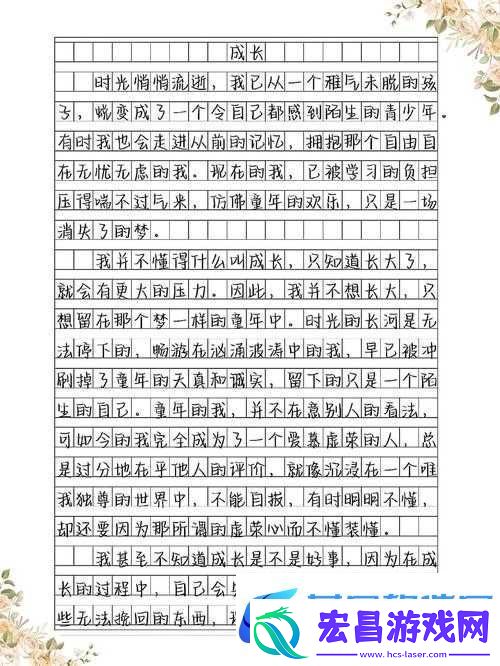 成长
时光悄悄流逝，我已从一个稚气未脱的孩
子，蜕变成了一个令自己都感到陌生的青少年。
有时我也会走进从前的记忆，拥抱那个自由自
在无忧无虑的我。现在的我，已被学习的负担
压得喘不过气来，仿佛童年的欢乐，只是一场
消失了的梦。
我并不懂得什么叫成长，只知道长大了，
就会有更大的压力。因此，我并不想长大，只
想留在那个梦一样的童年中。时光的长河是无
法停下的，畅游在汹涌波涛中的我，早已被冲
刷掉了童年的天真和诚实，留下的只是一个陌
生的自己。童年的我，并不在意别人的看法，
可如今的我完全成为了一个爱慕虚荣的人，总
是过分地在乎他人的评价，就像沉浸在一个唯
我独尊的世界中，不能自报，有时明明不懂，
却还要因为那所谓的虚荣心而不懂装懂。
我甚至不知道成长是不是好事，因为在成
长的过程中，自己会
些无法挽回的东西，
宏昌游戏网
www.hcs-laser.com